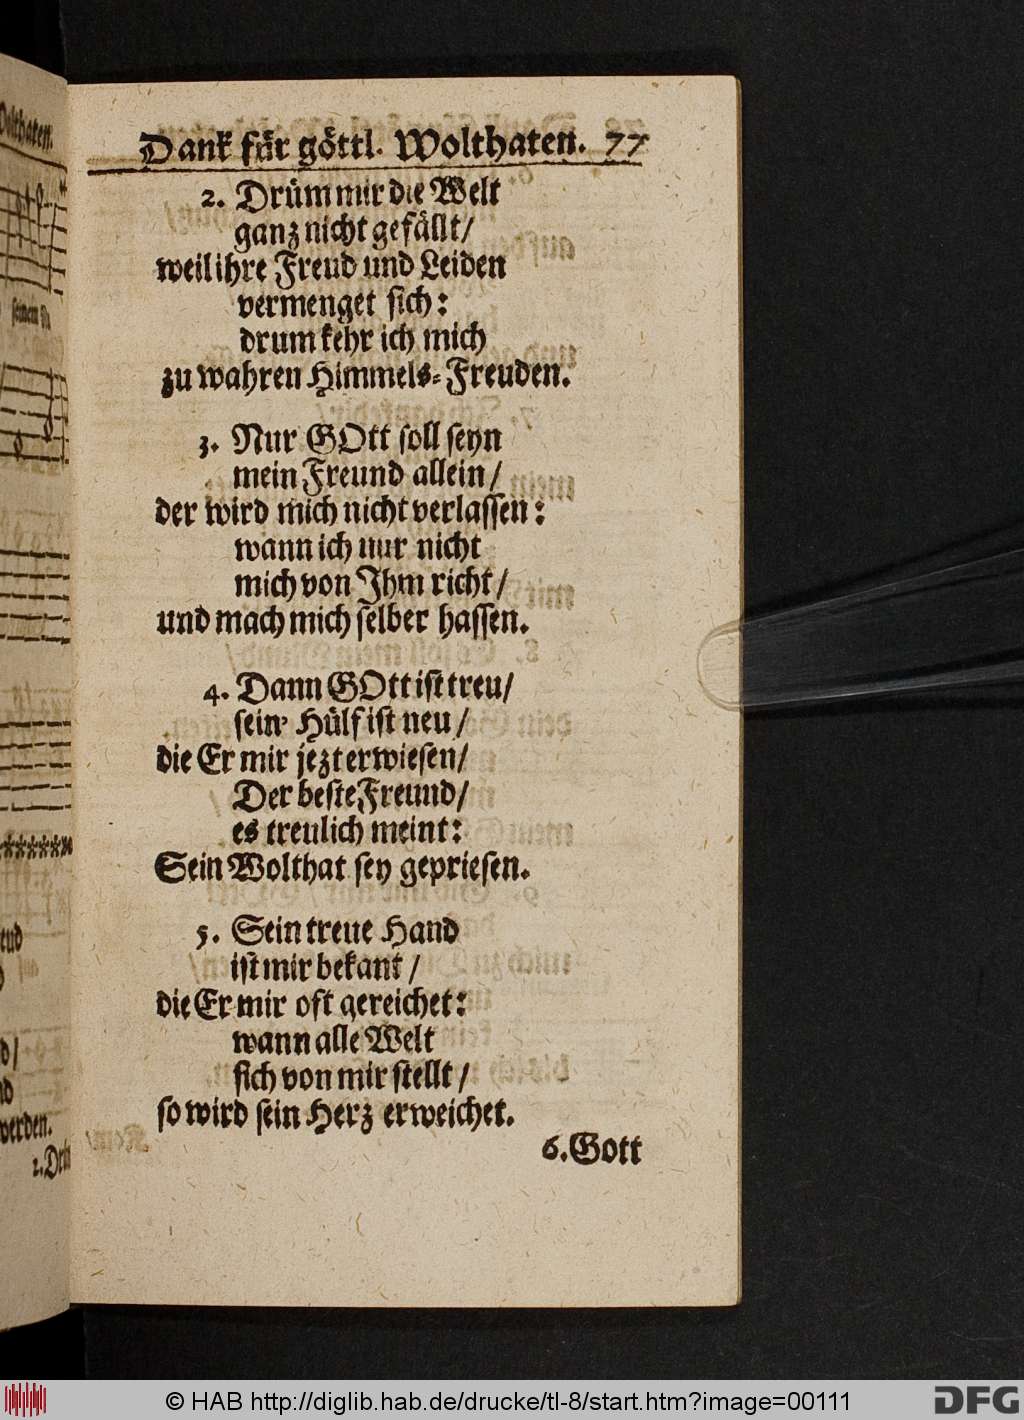 Dank für göttl. Wolthaten. 77
2. Drüm mir die Welt
ganz nicht gefällt/
weil ihre Freud und Leiden
vermenget sich:
drum kehr ich mich
zu wahren Himmels-Freuden.
3. Nur GOtt soll seyn
mein Freund allein/
der wird mich nicht verlassen:
wann ich nur nicht
mich von Ihm richt/
und mach mich selber hassen.
4. Dann GOtt ist treu/
sein' Hülf ist neu/
die Er mir jezt erwiesen/
Der beste Freund/
es treulich meint:
Sein Wolthat sey gepriesen.
5. Sein treue Hand
ist mir bekant/
die Er mir oft gereichet:
wann alle Welt
sich von mir stellt/
so wird sein Herz erweichet.
6. Gott
werden.
© HAB http://diglib.hab.de/drucke/tl-8/start.htm?image=00111
DFG